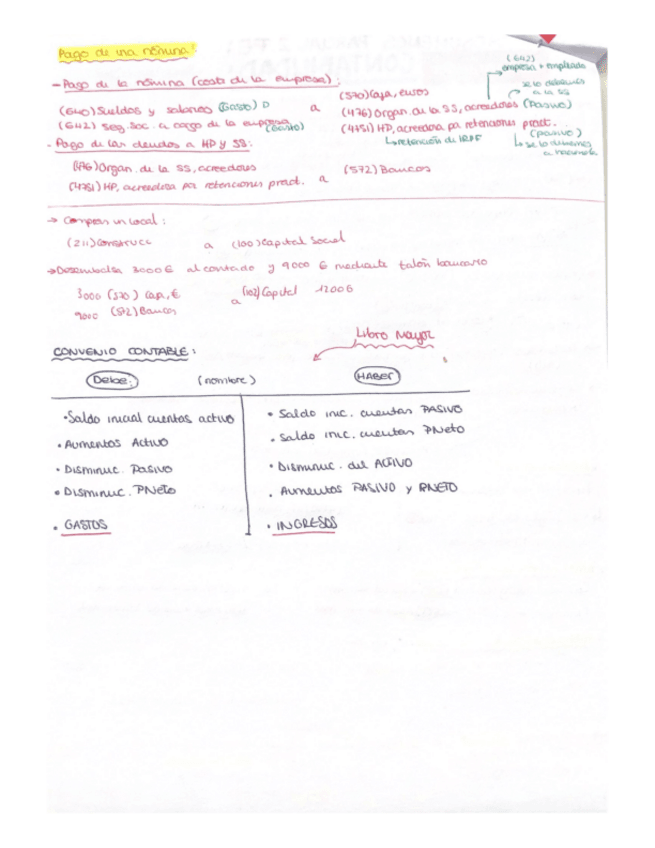 Pago de una nómina:
- Pago de la nómina (coste de la empresa):
(640) Sueldos y salarios (Gasto) D a (570) Caja, euros
(642) Seg. Soc. a cargo de la empresa (Gasto) (476) Organ. de la SS, acreedores (Pasivo)
(4751) HP, acreedora por retenciones pract. (pasivo)
(642)
empresa + empleado
se lo debemos
a la SS
↳ retención de IRPF
↳ se lo debemos
a hacienda
- Pago de las deudas a HP y SS:
(476) Organ. de la SS, acreedores (572) Bancos
(4751) HP, acreedora por retenciones pract. a
→ Compran un local:
(211) Construcc a (100) Capital Social
→ Desembolsa 3000 € al contado y 9000 € mediante talón bancario
3000 (570) Caja, € a Capital
9000 (572) Bancos
Libro Mayor
CONVENIO CONTABLE:
Debe: (nombre) HABER
• Saldo inicial cuentas activo • Saldo inic. cuentas PASIVO
• Saldo inic. cuentas PNeto
• Aumentos Activo
• Disminuc. Pasivo • Disminuc. del ACTIVO
• Disminuc. PNeto • Aumentos PASIVO y PNETO
• GASTOS • INGRESOS